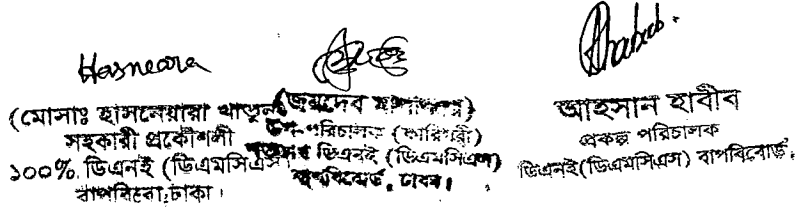 Hasneara
(মোসাঃ হাসনেয়ারা খাতুন)
সহকারী প্রকৌশলী
১০০% ডিএনই (ডিএমসিএস)
বাপবিবো, ঢাকা।
(জয়দেব
উপ-পরিচালক (কারিগরী)
ডিএনই (ডিএমসিএস)
বাপবিবোর্ড, ঢাকা।
আহসান হাবীব
প্রকল্প পরিচালক
ডিএনই(ডিএমসিএস) বাপবিবোর্ড.